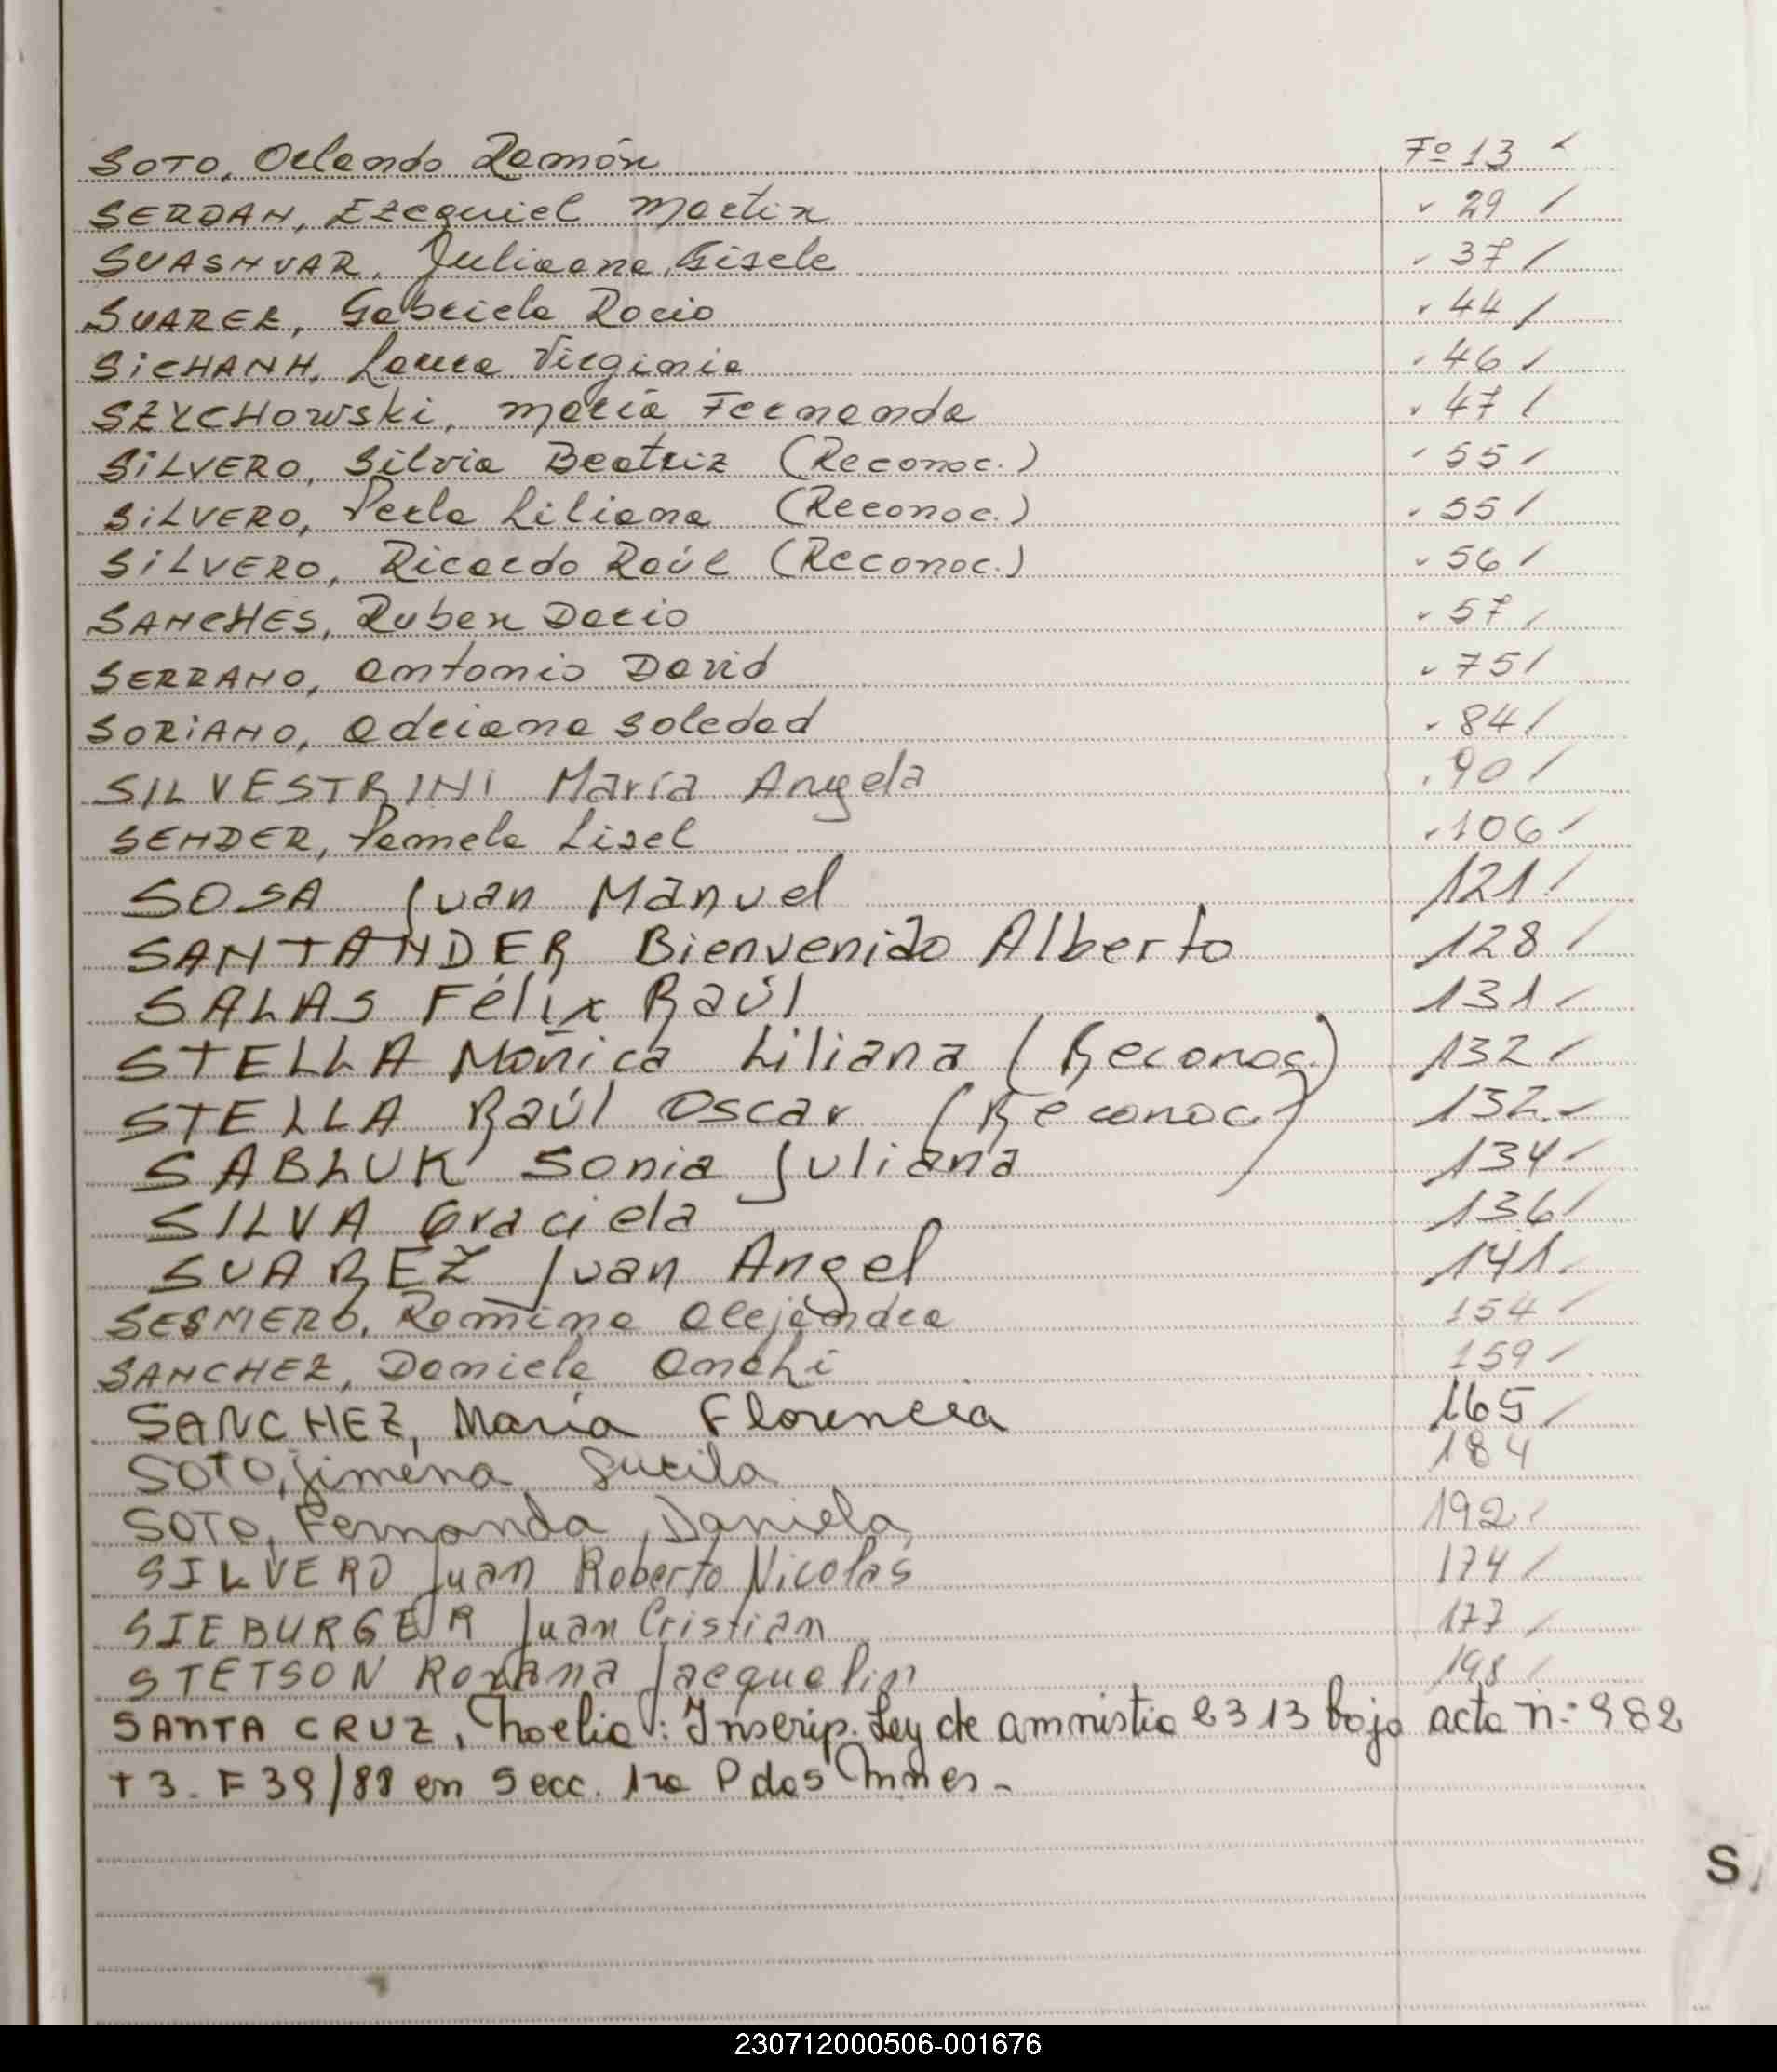 SOTO, Orlando Ramón Fº 13
SERDAN, Ezequiel Martin 29
SUASNVAR, Julieana Gisele 37
SUAREZ, Gabriela Rocio 44
SiCHANH, Laura Virginia 46
SZYCHOWSki, María Fernanda 47
SiLVERO, Silvia Beatriz (Reconoc.) 55
SiLVERO, Perla Liliana (Reconoc.) 55
SiLVERO, Ricardo Raúl (Reconoc.) 56
SANCHES, Ruben Dario 57
SERRANO, Antonio David 75
SORiANO, Adriana Soledad 84
SILVESTRINI María Angela 90
SENDER, Pamela Lisel 106
SOSA Juan Manuel 121
SANTANDER Bienvenido Alberto 128
SALAS Félix Raúl 131
STELLA Mónica Liliana (Reconoc.) 132
STELLA Raúl Oscar (Reconoc.) 132
SABLUK Sonia Juliana 134
SILVA Graciela 136
SUAREZ Juan Angel 141
SESMERO, Romina Alejandra 154
SANCHEZ, Daniela Anahi 159
SANCHEZ, María Florencia 165
SOTO, Jimena Lucila 184
SOTO, Fernanda Daniela 192
SILVERO Juan Roberto Nicolás 174
SIEBURGER Juan Cristian 177
STETSON Roxana Jacquelin 198
SANTA CRUZ, Noelia: Inscrip. Ley de amnistia 2313 bajo acta n: 982
T3. F39/88 en Secc. 1ra Pdas
S
230712000506-001676